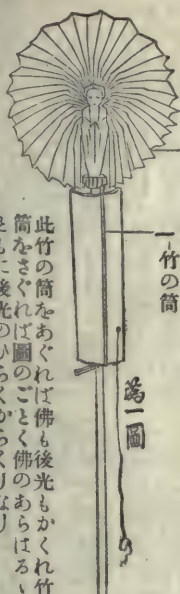 竹の筒
第一圖
此竹の筒をあぐれば佛も後光もかくれ竹
筒をさぐれば圖のごとく佛のあらはるゝ
ともに後光のひらくからくりなり